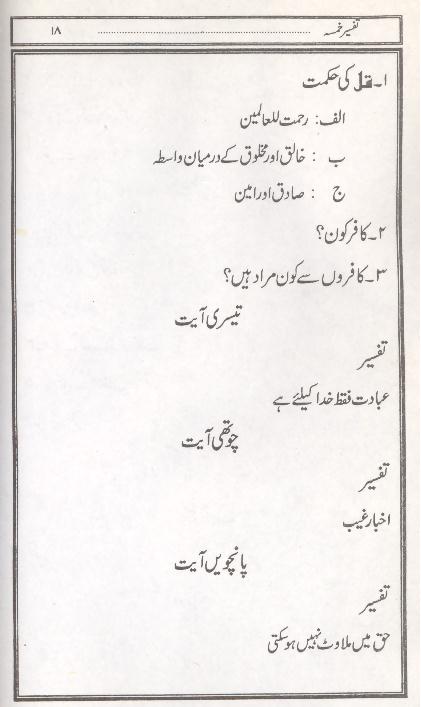 تفسیر خمسہ ........................................ ۱۸
۱۔ قل کی حکمت
الف: رحمت للعالمین
ب : خالق اور مخلوق کے درمیان واسطہ
ج : صادق اور امین
۲۔ کافر کون؟
۳۔ کافروں سے کون مراد ہیں؟
تیسری آیت
تفسیر
عبادت فقط خدا کیلئے ہے
چوتھی آیت
تفسیر
اخبار غیب
پانچویں آیت
تفسیر
حق میں ملاوٹ نہیں ہو سکتی